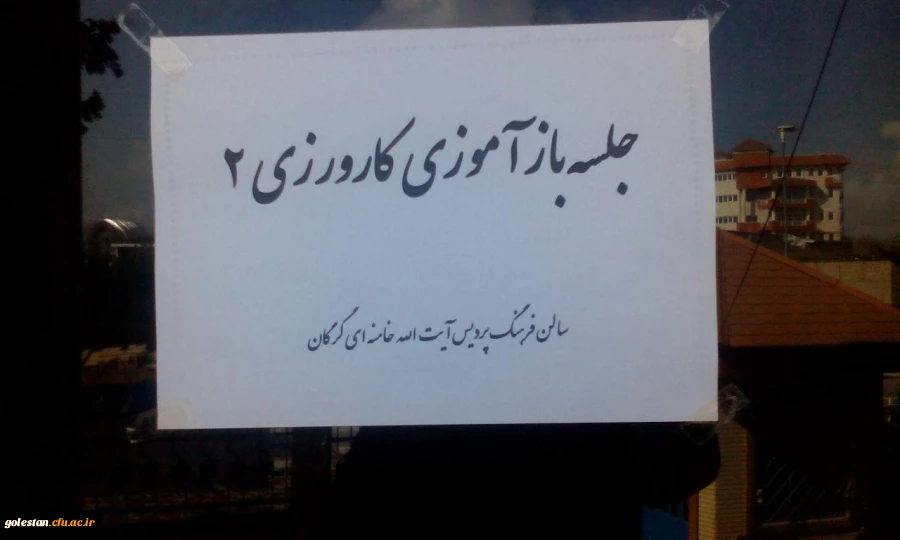 جلسه باز آموزی کارورزی ۲
سالن فرهنگ پردیس آیت الله خامنه ای گرگان
golestan.cfu.ac.ir